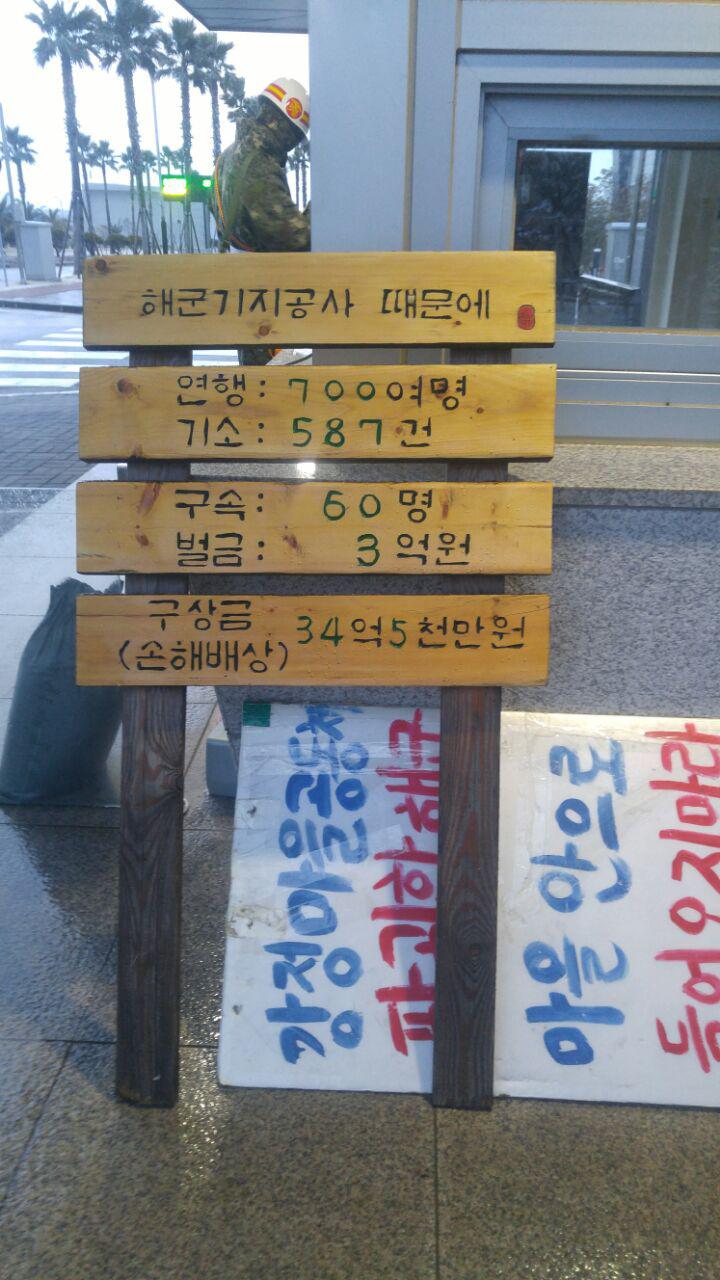 해군기지공사 때문에
연행: 700여명
기소: 587건
구속: 60명
벌금: 3억원
구상금
(손해배상) 34억5천만원
강정마을공동체
파괴한 해군
마을 안으로
들어오지마라